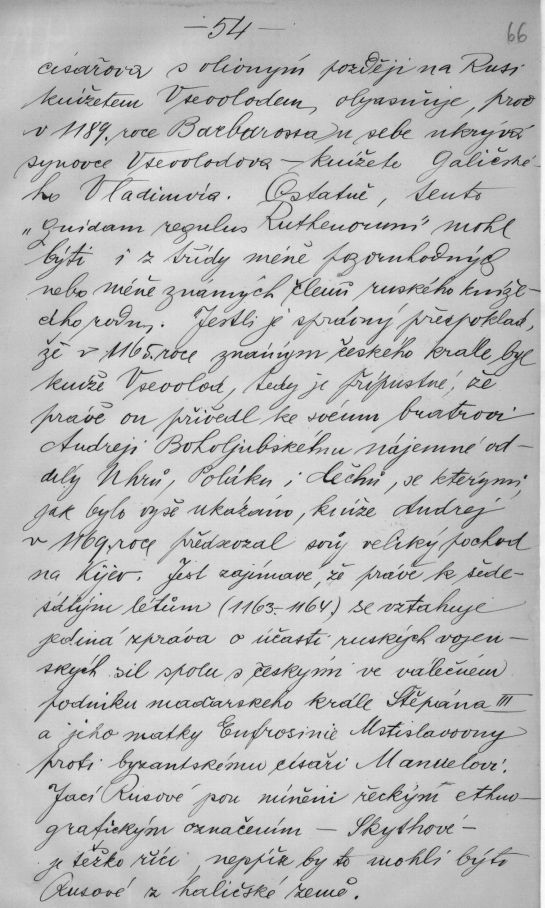 — 54 —
66
císařova s vlivným později na Rusi
knížetem Vsevolodem, objasňuje, proč
v 1189. roce Barbarossa u sebe ukrývá
synovce Vsevolodova — knížete Haličské-
ho Vladimíra. Ostatně, tento
„quidam regulus Ruthenorum" mohl
býti i z třídy méně pozoruhodných
nebo méně známých členů ruského kníže-
cího rodu. Jestli je správný předpoklad,
že v 1165. roce známým českého krále byl
kníže Vsevolod, tedy je přípustné, že
právě on přivedl ke svému bratrovi
Andreji Boholjubskému nájemné od-
díly Uhrů, Poláků i Čechů, se kterými,
jak bylo výše ukázáno, kníže Andrej
v 1169. roce předsevzal svůj veliký pochod
na Kijev. Jest zajímavé, že právě k šede-
sátým létům (1163–1164.) se vztahuje
jediná zpráva o účasti ruských vojen-
ských sil spolu s českými ve válečném
podniku maďarského krále Štěpána III
a jeho matky Eufrosinie Mstislavovny
proti byzantskému císaři Manuelovi.
Jací Rusové jsou míněni řeckým ethno-
grafickým označením — Skythové —
je těžko říci, nejspíš by to mohli býti
Rusové z haličské země.